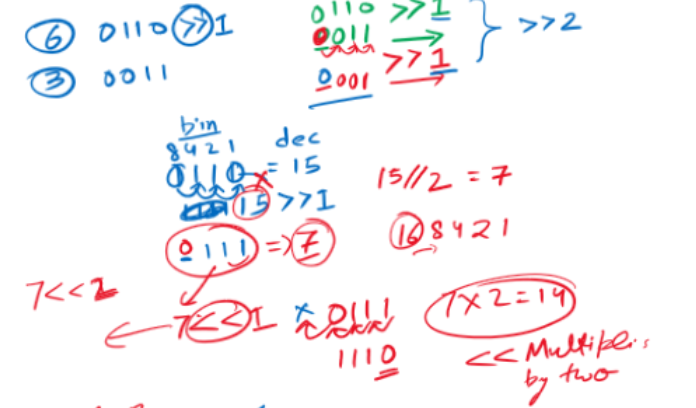 6 0110 >> 1
3 0011
0110 >> 1
0011
0001 >> 1
>> 2
bin
8421
dec
= 15
15 >> 1
0111 => 7
15//2 = 7
16 8 4 2 1
7<<2
7<<1
x 0111
1110
7x2=14
<< Multiplies
by two